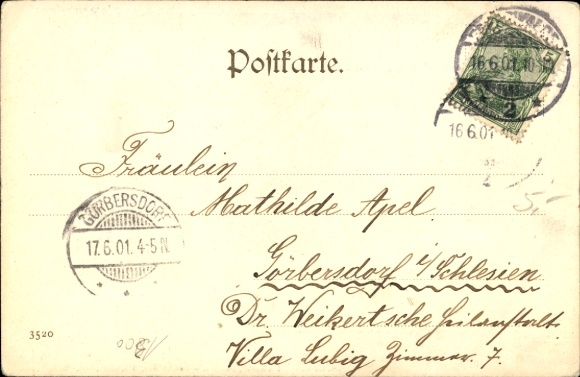 Postkarte.
16.6.01.10
2
16.6.01
Fräulein
Mathilde Apel.
GÖRBERSDORF
17.6.01.4-5N.
Görbersdorf i/Schlesien
Dr. Weikert'sche Heilanstalt.
Villa Lubig Zimmer. 7.
3520